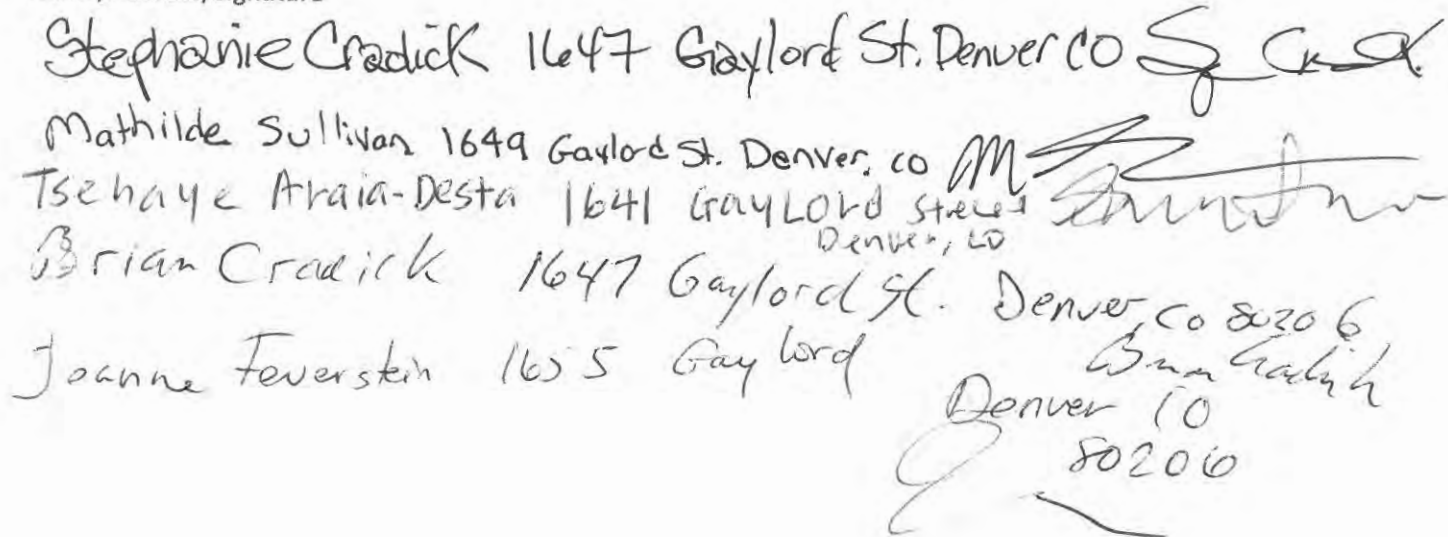 Stephanie Cradick 1647 Gaylord St. Denver CO
Mathilde Sullivan 1649 Gaylord St. Denver, CO
Tsehaye Araia-Desta 1641 Gaylord Street
Denver, CO
Brian Cradick 1647 Gaylord St. Denver, Co 80206
Brian Cradick
Joanne Feuerstein 1655 Gaylord
Denver CO
80206